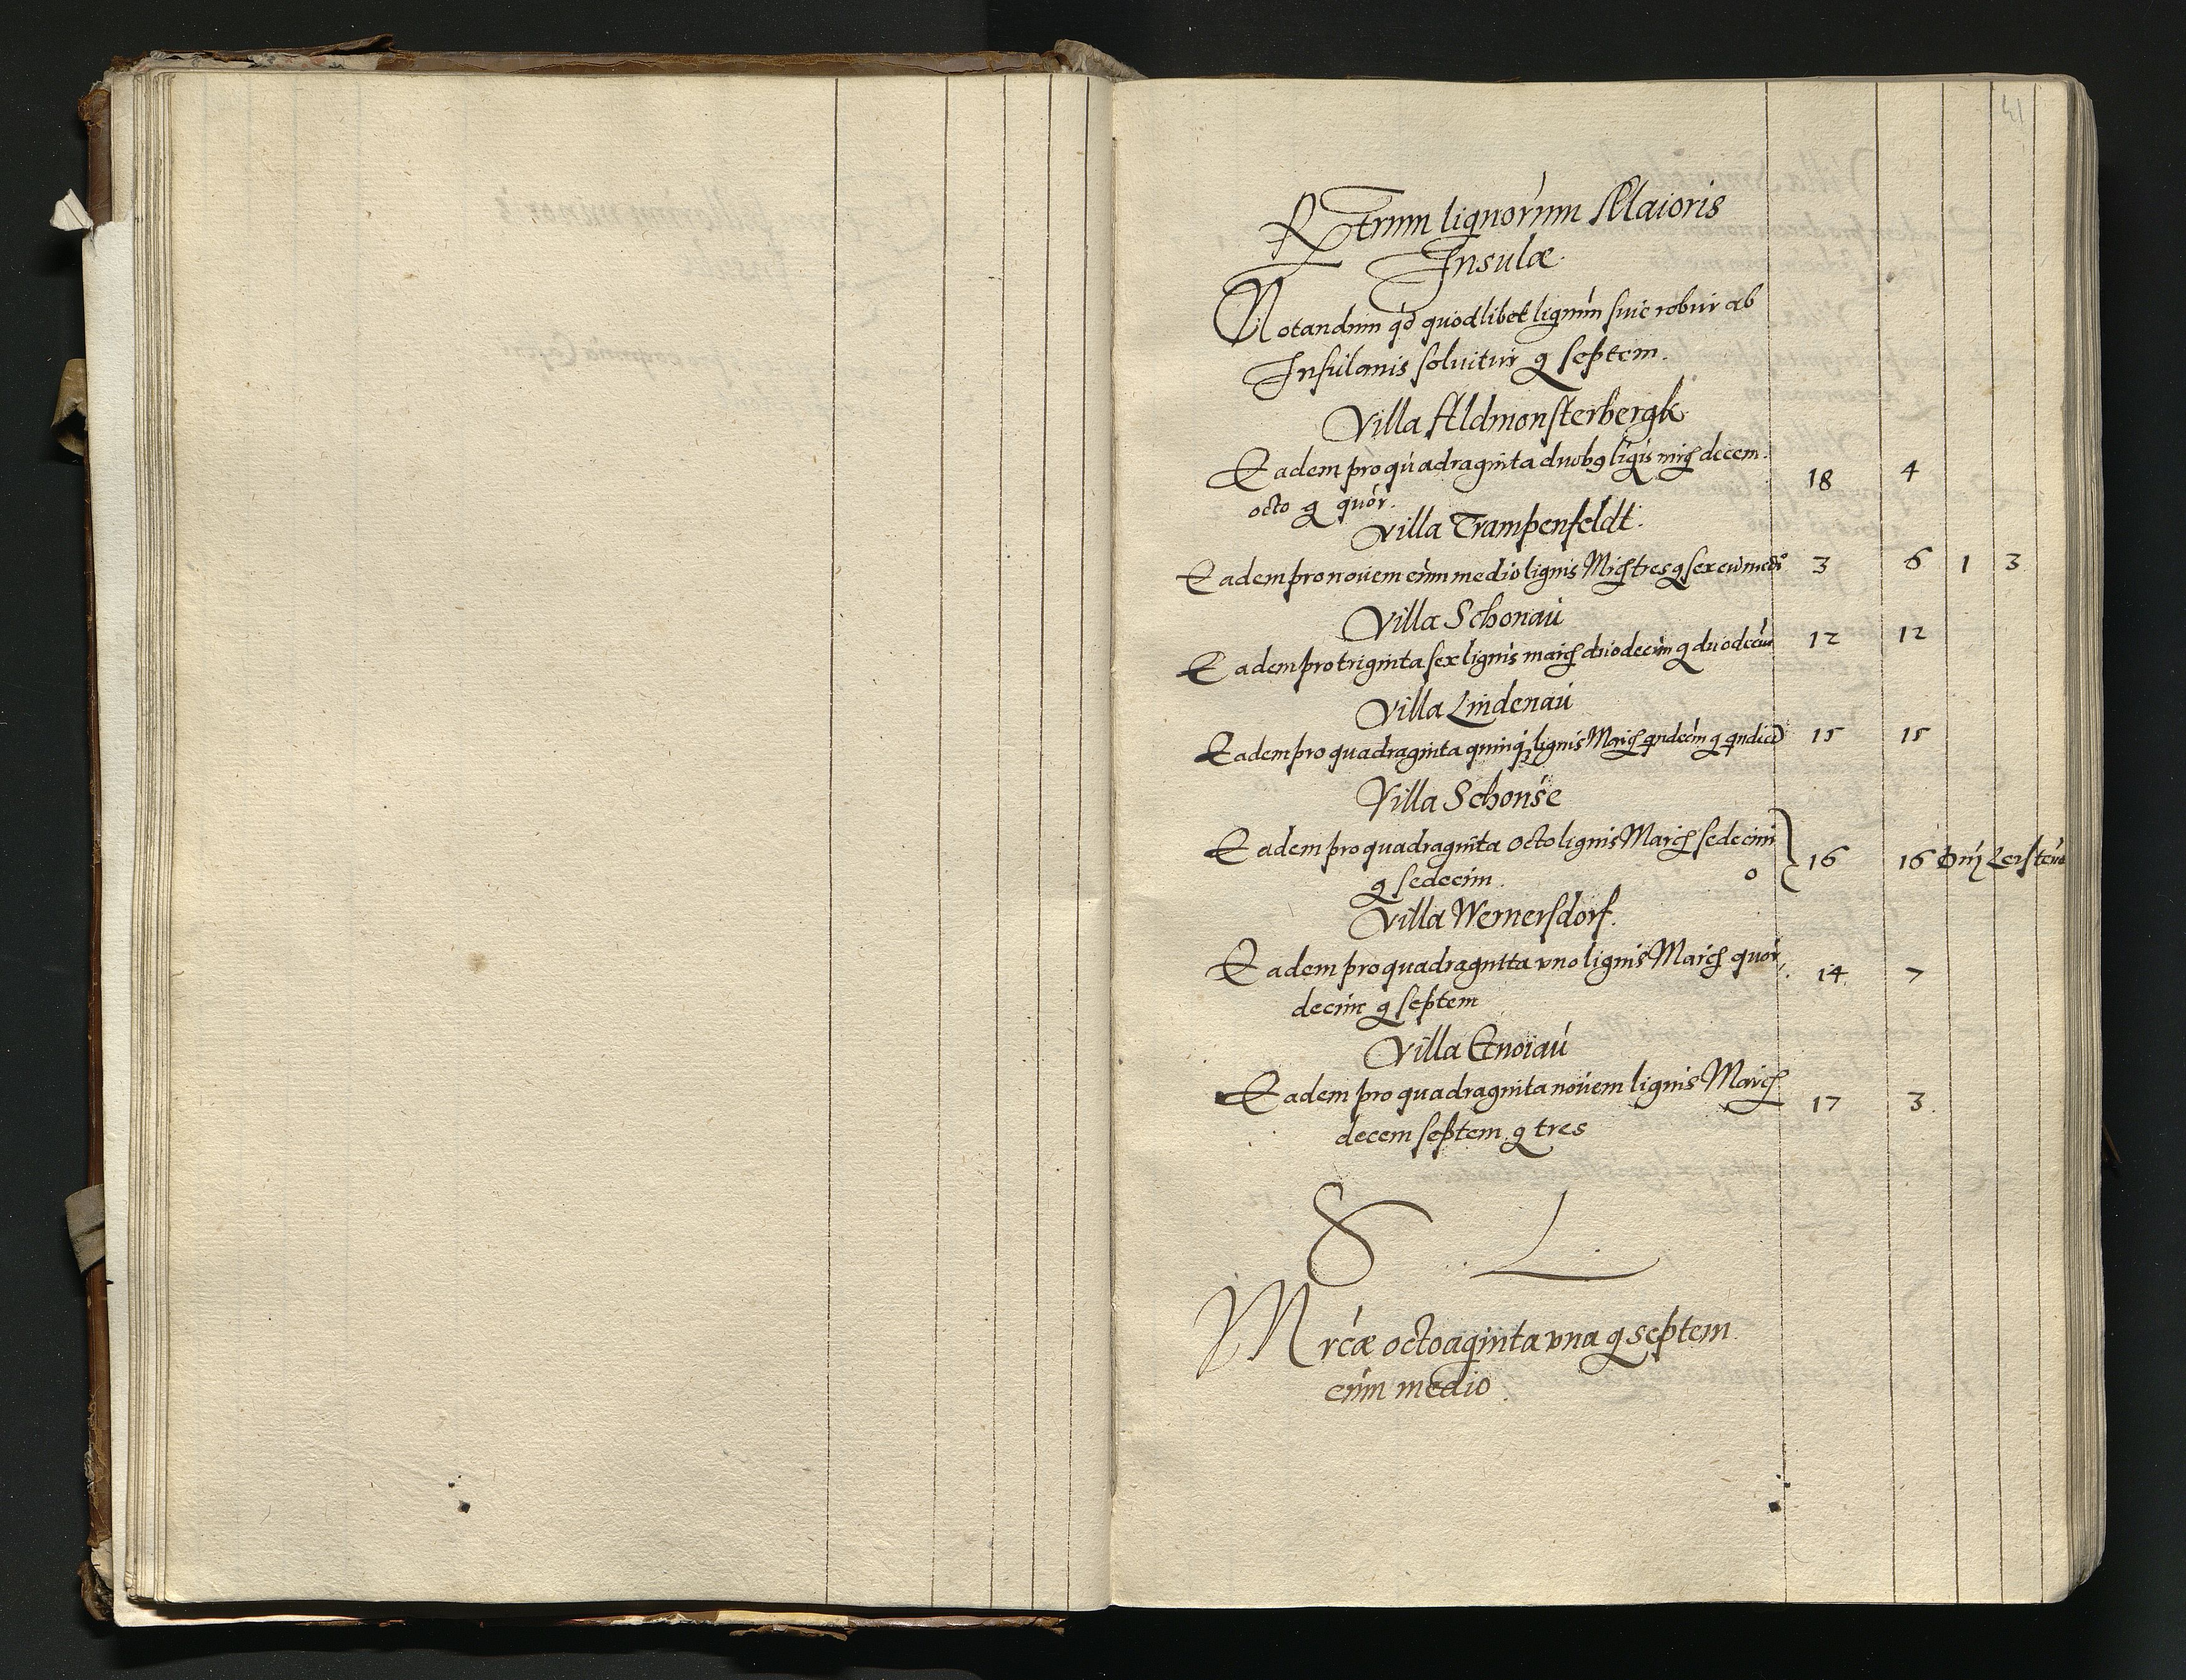 41
Rtrum lignorum Maioris
Insulæ.
Notandum qd quodlibet lignum siue robur ab
Insulanis soluitur g septem.
Villa Aldmonsterbergk.
Eadem pro quadraginta duobꝫ ligis mrc decem. 18 4
octo g quor.
Villa Trampenfeldt.
Eadem pro nouem cum medio lignis Mrc tres g sex cu medo 3 6 1 3
Villa Schonau
Eadem pro triginta sex lignis marc duodecim g duodecim 12 12
Villa Lindenau
Eadem pro quadraginta quinqꝫ lignis Marc qndecim g qndeci 15 15
Villa Schonse
Eadem pro quadraginta octo lignis Marc sedecim
g sedecim. o 16 16
Villa Wernersdorf.
Eadem pro quadraginta vno lignis Marc quor, 14. 7
decim g septem
Villa Gnoiau
Eadem pro quadraginta nouem lignis Marc 17 3.
decem septem g tres
S L
Mrcæ octoaginta vna g septem
cum medio.